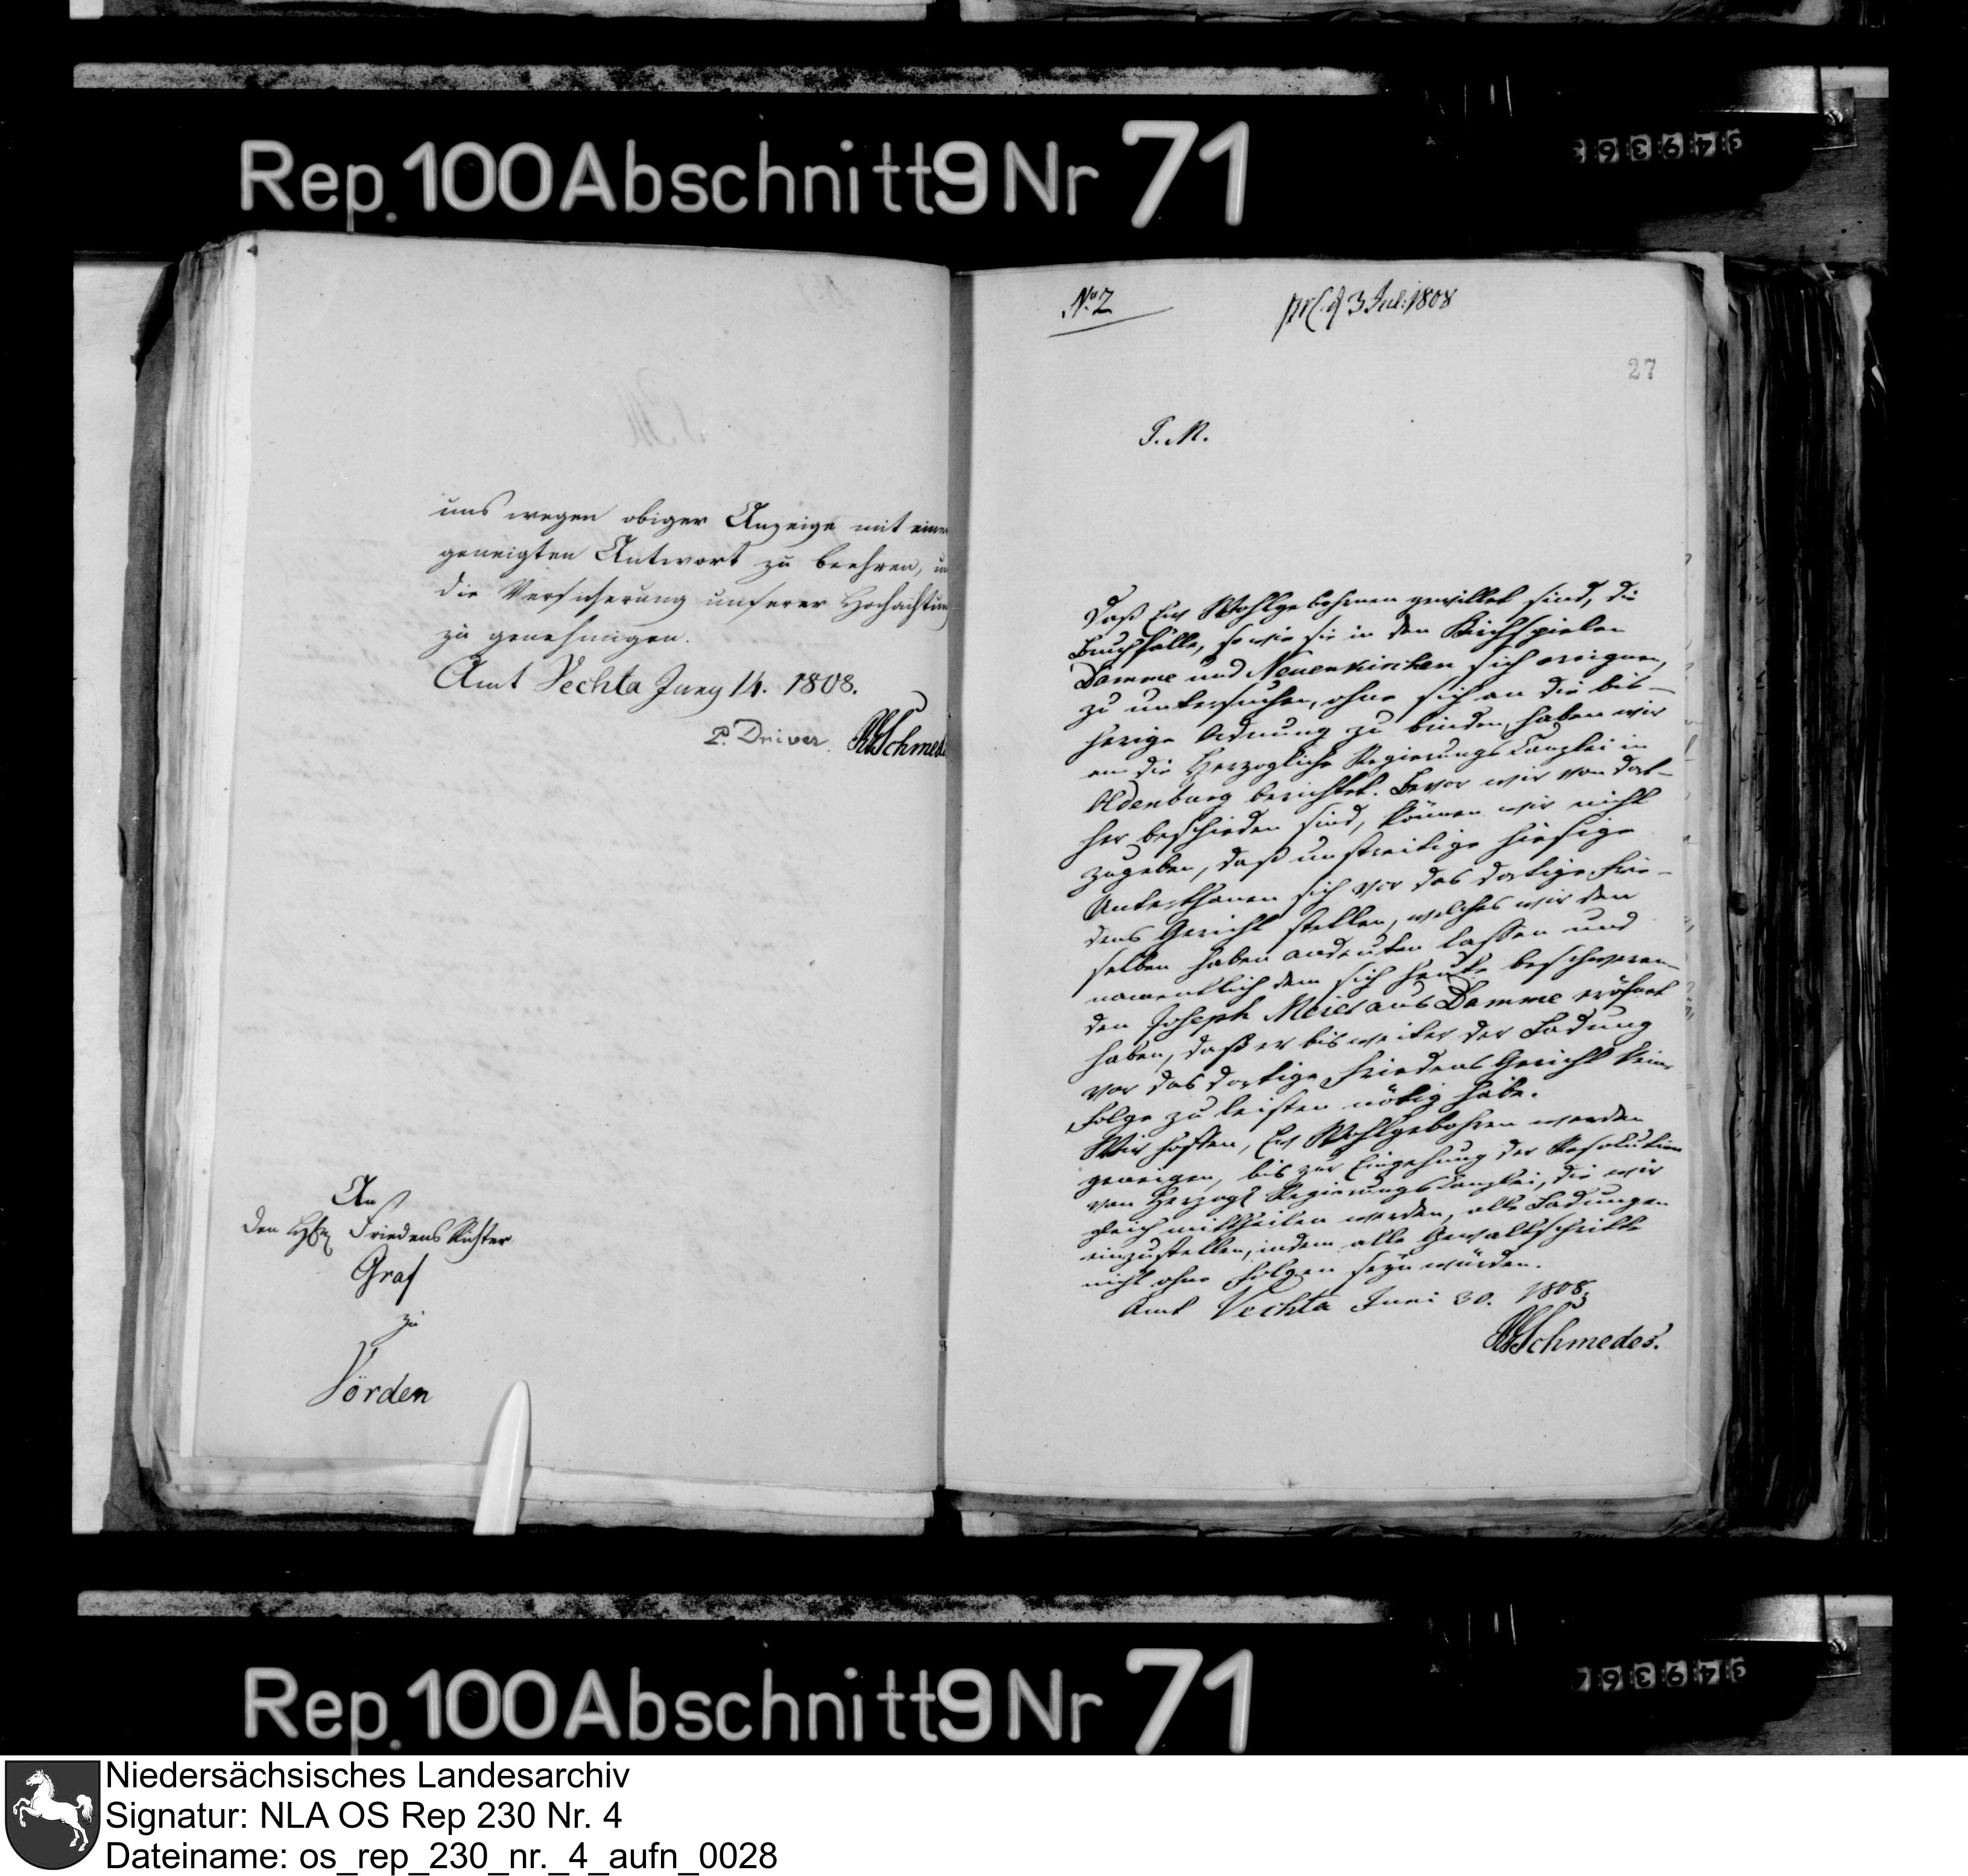 Rep. 100 Abschnitt 9 Nr 71
349363
uns wegen obiger Anzeige mit einer
geneigten Antwort zu beehren, un
die Versicherung unserer Hochachtung
zu genehmigen.
Amt Vechta Juny 14. 1808.
P. Driver. Schmede
An
den Hhn FriedensRichter
Graf
zu
Vörden
No 2
prs. d 3 Jul. 1808
27
P. M.
Daß Ew Wohlgebohrnen gewillet sind, die
Bruchfälle, sowie sie in den Kirchspielen
Damme und Neuenkirchen sich ereignen,
zu untersuchen, ohne sich an die bis-
herige Ordnung zu binden, haben wir
an die Herzogliche Regierungs Canzlei in
Oldenburg berichtet. Bevor wir von dort-
her beschieden sind, können wir nicht
zugeben, daß unstreitige hiesige
Unterthanen sich vor das dortige Frie-
dens Gericht stellen, welches wir den
selben haben andeuten lassen und
namentlich dem sich heute beschweren-
den Joseph Meier aus Damme eröfnet
haben, daß er bis weiter der Ladung
vor das dortige Friedens Gericht keine
Folge zu leisten nötig habe.
Wir hoffen, Ew Wohlgebohren werden
geneigen, bis zur Eingehung der Resolution
von Herzogl Regierungs Canzlei, die wir
gleich mittheilen werden, alle Ladungen
einzustellen, indem alle Gewaltschritte
nicht ohne Folgen seyn würden.
Amt Vechta Juni 30. 1808.
Schmedes.
Rep. 100 Abschnitt 9 Nr 71
Niedersächsisches Landesarchiv
Signatur: NLA OS Rep 230 Nr. 4
Dateiname: os_rep_230_nr._4_aufn_0028